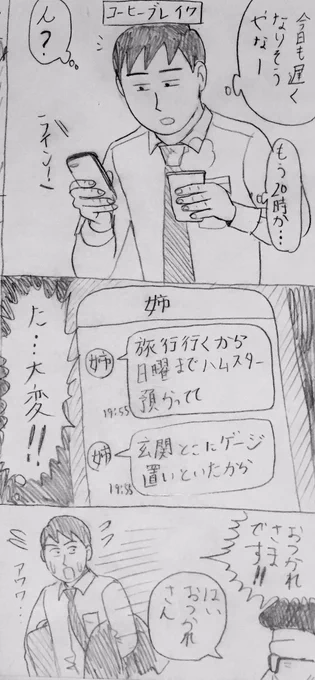 コーヒーブレイク
今日も遅く
なりそう
やなー
もう20時か…
ん？
ライン！
姉
姉
旅行行くから
日曜までハムスター
預かってて
19:55
姉
玄関とこにゲージ
置いといたから
19:55
た…大変！！
おつかれ
さま
です!!
はい
おつかれ
さん
アワワ…